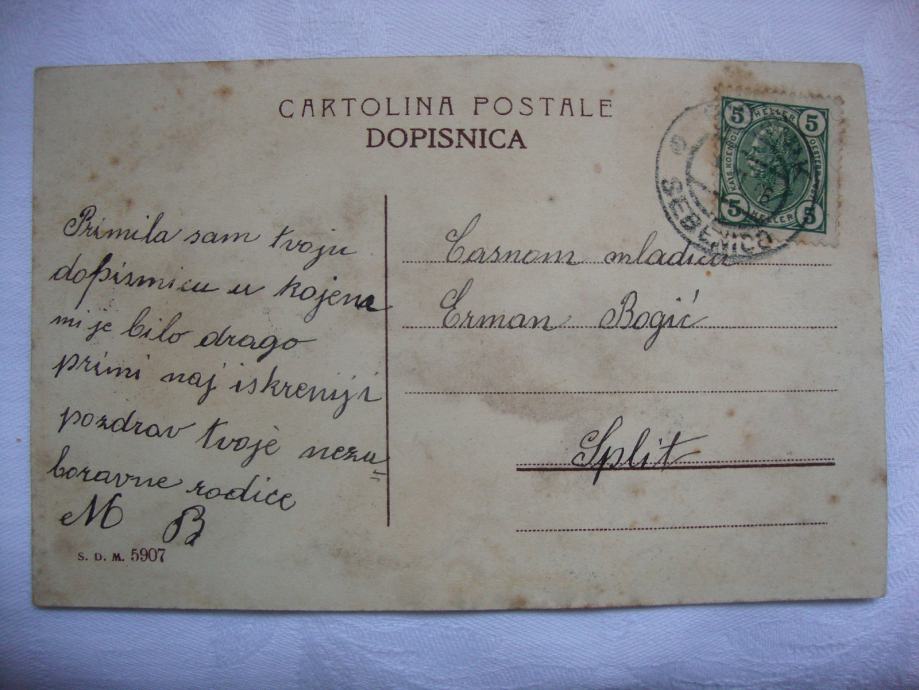 CARTOLINA POSTALE
DOPISNICA
5 HELLER 5
5 HELLER 5
SEBENICO
Primila sam tvoju
dopismicu u kojena
mi je bilo drago
primi naj iskreniji
pozdrav tvoje nezu
boravne rodice
M B
S. D. M. 5907
Casnom mladicu
Erman Bogić
Split